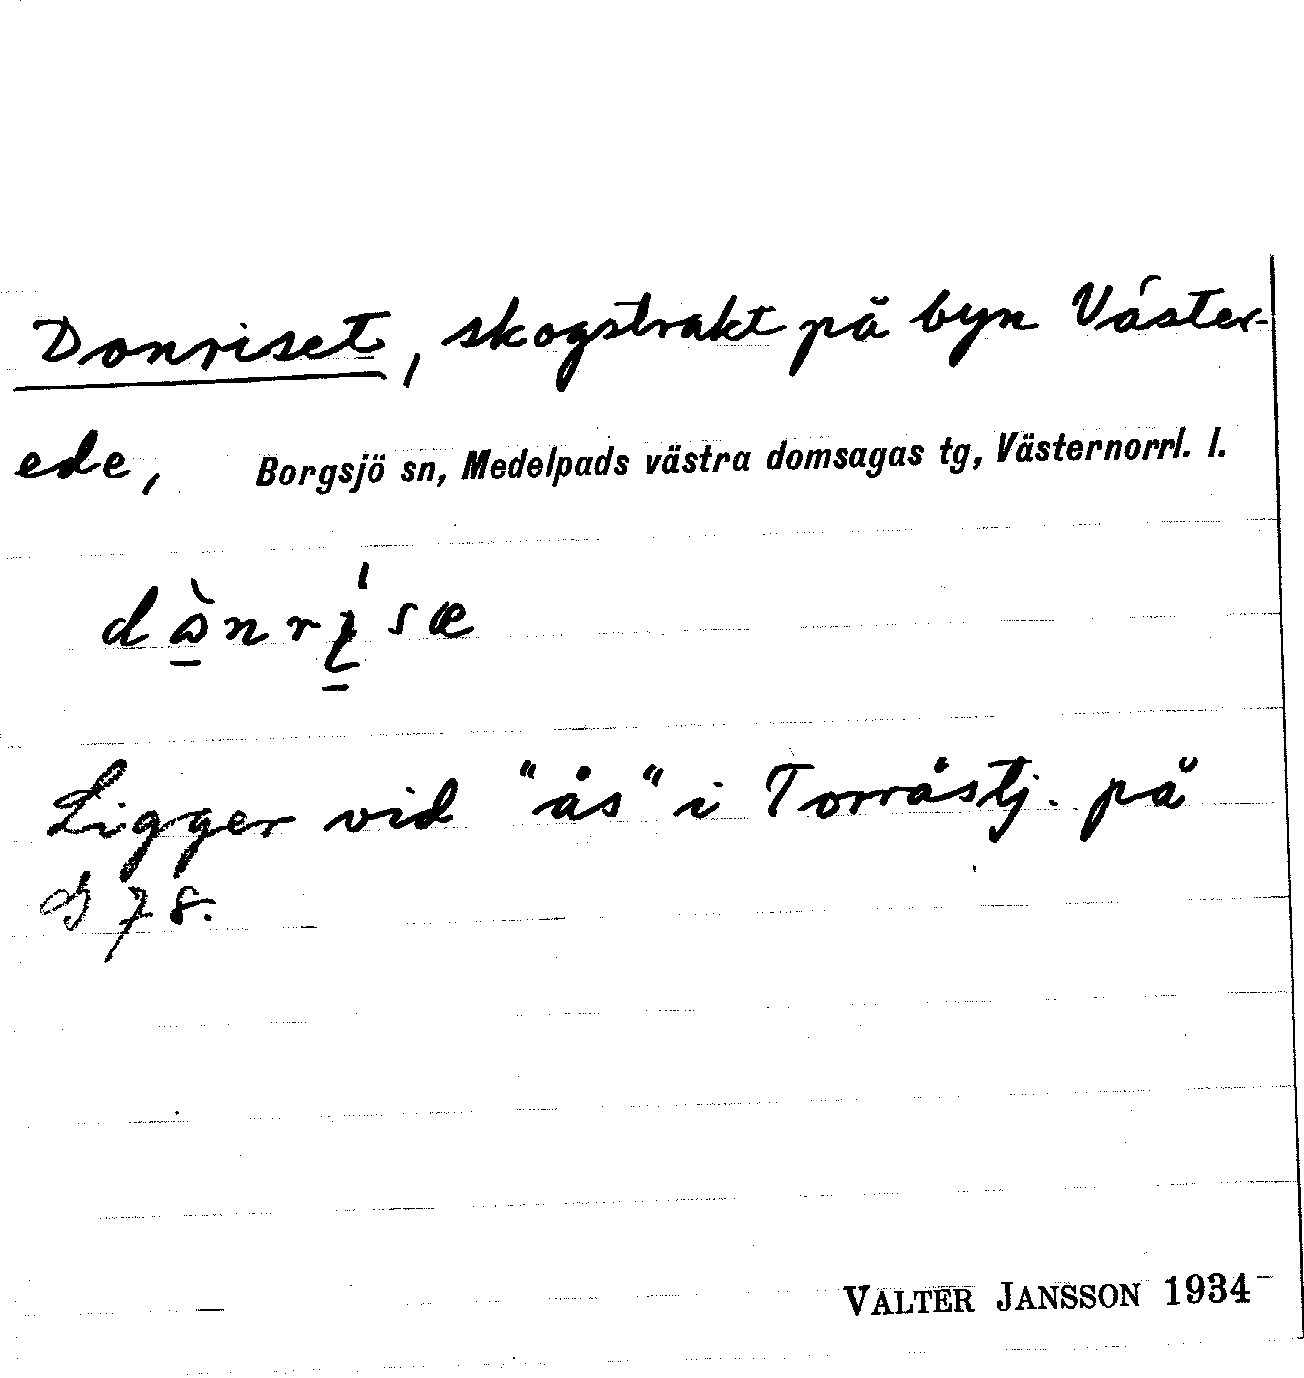 Donriset, skogstrakt på byn Väster-
ede, Borgsjö sn, Medelpads västra domsagas tg, Västernorrl. l.
Ligger vid "ås" i Torråstj. på
78.
VALTER JANSSON 1934